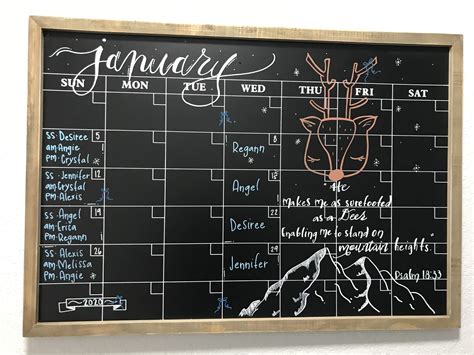 January
SUN MON TUE WED THU FRI SAT
SS - Desiree 5
am - Angie
pm - Crystal
Regann
SS - Jennifer 12
am - Crystal
pm - Alexis
Angel
SS - Angel 19
am - Erica
pm - Regann
Desiree
SS - Alexis 26
am - Melissa
pm - Angie
Jennifer
He
makes me as surefooted
as a Deer
Enabling me to stand on
mountain heights."
Psalm 18:33
2020